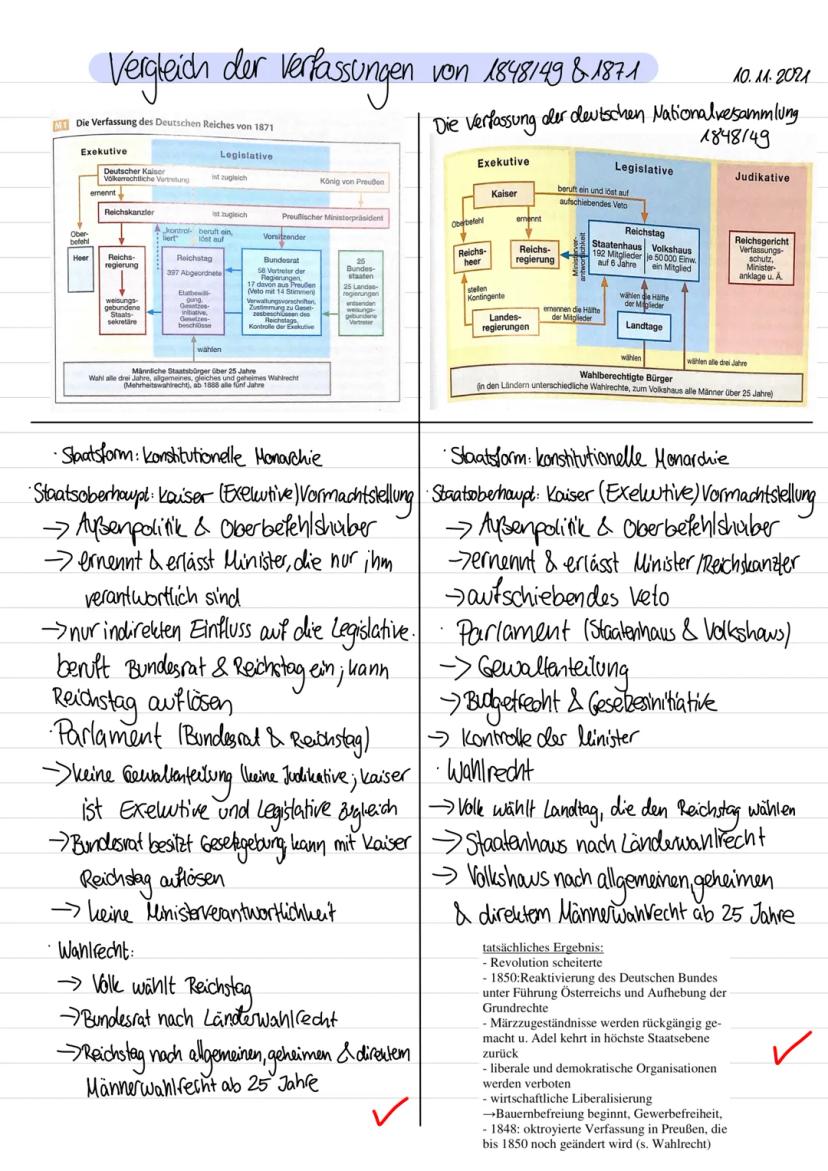 Vergleich der Verfassungen von 1848/49 & 1871
10.11.2021
M1 Die Verfassung des Deutschen Reiches von 1871
Exekutive
Legislative
Deutscher Kaiser
Völkerrechtliche Vertretung
ist zugleich
König von Preußen
ernennt
Reichskanzler
ist zugleich
Preußischer Ministerpräsident
Ober-
befehl
„kontrol-
liert"
beruft ein,
löst auf
Vorsitzender
Heer
Reichs-
regierung
weisungs-
gebundene
Staats-
sekretäre
Reichstag
397 Abgeordnete
Etatbewilli-
gung,
Gesetzes-
initiative,
Gesetzes-
beschlüsse
Bundesrat
58 Vertreter der
Regierungen,
17 davon aus Preußen
(Veto mit 14 Stimmen)
Verwaltungsvorschriften,
Zustimmung zu Geset-
zesbeschlüssen des
Reichstags,
Kontrolle der Exekutive
25
Bundes-
staaten
25 Landes-
regierungen
entsenden
weisungs-
gebundene
Vertreter
wählen
Männliche Staatsbürger über 25 Jahre
Wahl alle drei Jahre, allgemeines, gleiches und geheimes Wahlrecht
(Mehrheitswahlrecht), ab 1888 alle fünf Jahre
Die Verfassung der deutschen Nationalversammlung
1848/49
Exekutive
Legislative
Judikative
Kaiser
beruft ein und löst auf
aufschiebendes Veto
Oberbefehl
ernennt
Reichs-
heer
Reichs-
regierung
Ministerver-
antwortlichkeit
Reichstag
Staatenhaus
192 Mitglieder
auf 6 Jahre
Volkshaus
je 50000 Einw.
ein Mitglied
Reichsgericht
Verfassungs-
schutz,
Minister-
anklage u. Ä.
stellen
Kontingente
Landes-
regierungen
ernennen die Hälfte
der Mitglieder
wählen die Hälfte
der Mitglieder
Landtage
wählen
wählen alle drei Jahre
Wahlberechtigte Bürger
(in den Ländern unterschiedliche Wahlrechte, zum Volkshaus alle Männer über 25 Jahre)
· Staatsform: Konstitutionelle Monarchie
· Staatsoberhaupt: Kaiser (Exekutive) Vormachtstellung
→ Außenpolitik & Oberbefehlshaber
→ ernennt & erlässt Minister, die nur ihm
verantwortlich sind
→ nur indirekten Einfluss auf die Legislative.
beruft Bundesrat & Reichstag ein; kann
Reichstag auflösen
· Parlament (Bundesrat & Reichstag)
→ keine Gewaltenteilung (keine Judikative; Kaiser
ist Exekutive und Legislative zugleich
→ Bundesrat besitzt Gesetzgebung, kann mit Kaiser
Reichstag auflösen
→ keine Ministerverantwortlichkeit
· Wahlrecht:
→ Volk wählt Reichstag
→ Bundesrat nach Länderwahlrecht
→ Reichstag nach allgemeinen, geheimen & direktem
Männerwahlrecht ab 25 Jahre
· Staatsform: konstitutionelle Monarchie
· Staatsoberhaupt: Kaiser (Exekutive) Vormachtstellung
→ Außenpolitik & Oberbefehlshaber
→ ernennt & erlässt Minister/Reichskanzler
→ aufschiebendes Veto
· Parlament (Staatenhaus & Volkshaus)
→ Gewaltenteilung
→ Budgetrecht & Gesetzesinitiative
→ Kontrolle der Minister
· Wahlrecht
→ Volk wählt Landtag, die den Reichstag wählen
→ Staatenhaus nach Länderwahlrecht
→ Volkshaus nach allgemeinen, geheimen
& direktem Männerwahlrecht ab 25 Jahre
tatsächliches Ergebnis:
- Revolution scheiterte
- 1850:Reaktivierung des Deutschen Bundes
unter Führung Österreichs und Aufhebung der
Grundrechte
- Märzzugeständnisse werden rückgängig ge-
macht u. Adel kehrt in höchste Staatsebene
zurück
- liberale und demokratische Organisationen
werden verboten
- wirtschaftliche Liberalisierung
→Bauernbefreiung beginnt, Gewerbefreiheit,
- 1848: oktroyierte Verfassung in Preußen, die
bis 1850 noch geändert wird (s. Wahlrecht)